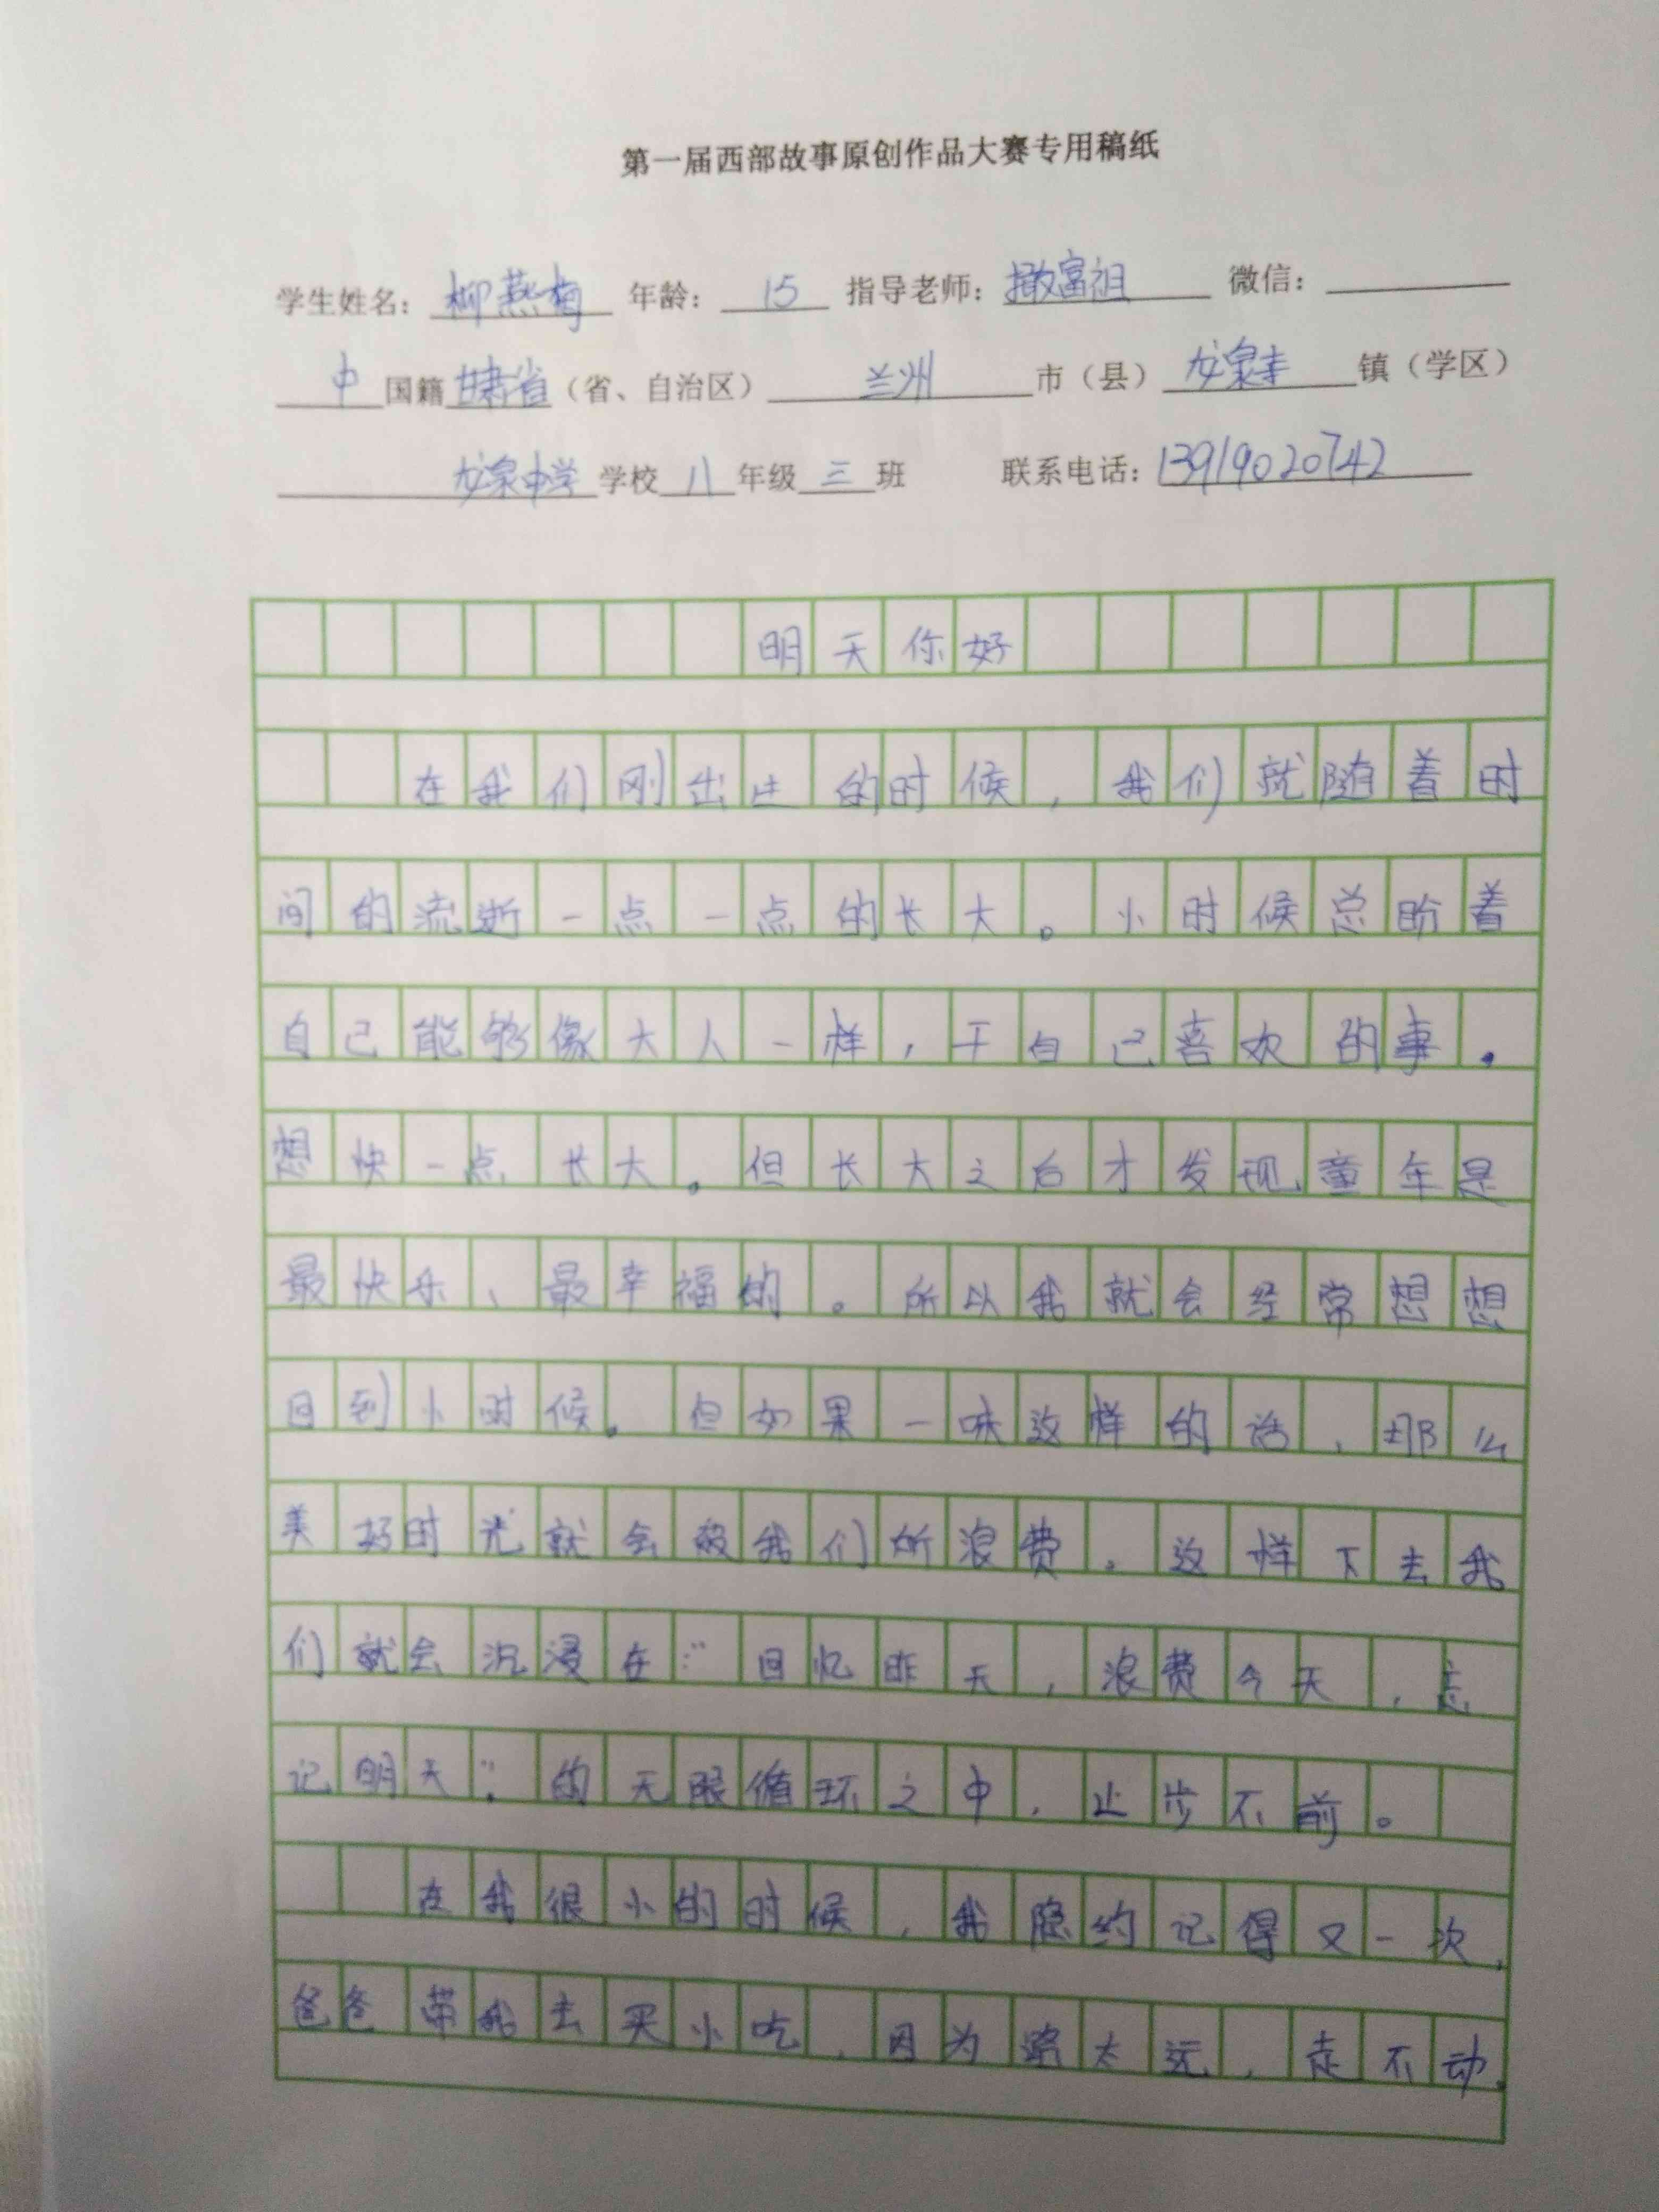 第一届西部故事原创作品大赛专用稿纸
学生姓名：柳燕梅 年龄：15 指导老师：撒富祖 微信：
中国籍甘肃省（省、自治区）兰州市（县）龙泉寺镇（学区）
龙泉中学学校八年级三班 联系电话：13919020742
明天你好
在我们刚出生的时候，我们就随着时
间的流逝一点一点的长大。小时候总盼着
自己能够像大人一样，干自己喜欢的事。
想快一点长大。但长大之后才发现童年是
最快乐、最幸福的。所以我就会经常想想
回到小时候。但如果一味这样的话，那么
美好时光就会被我们所浪费。这样下去我
们就会沉浸在：“回忆昨天，浪费今天，忘
记明天”。的无限循环之中，止步不前。
在我很小的时候，我隐约记得又一次，
爸爸带我去买小吃，因为路太远，走不动，